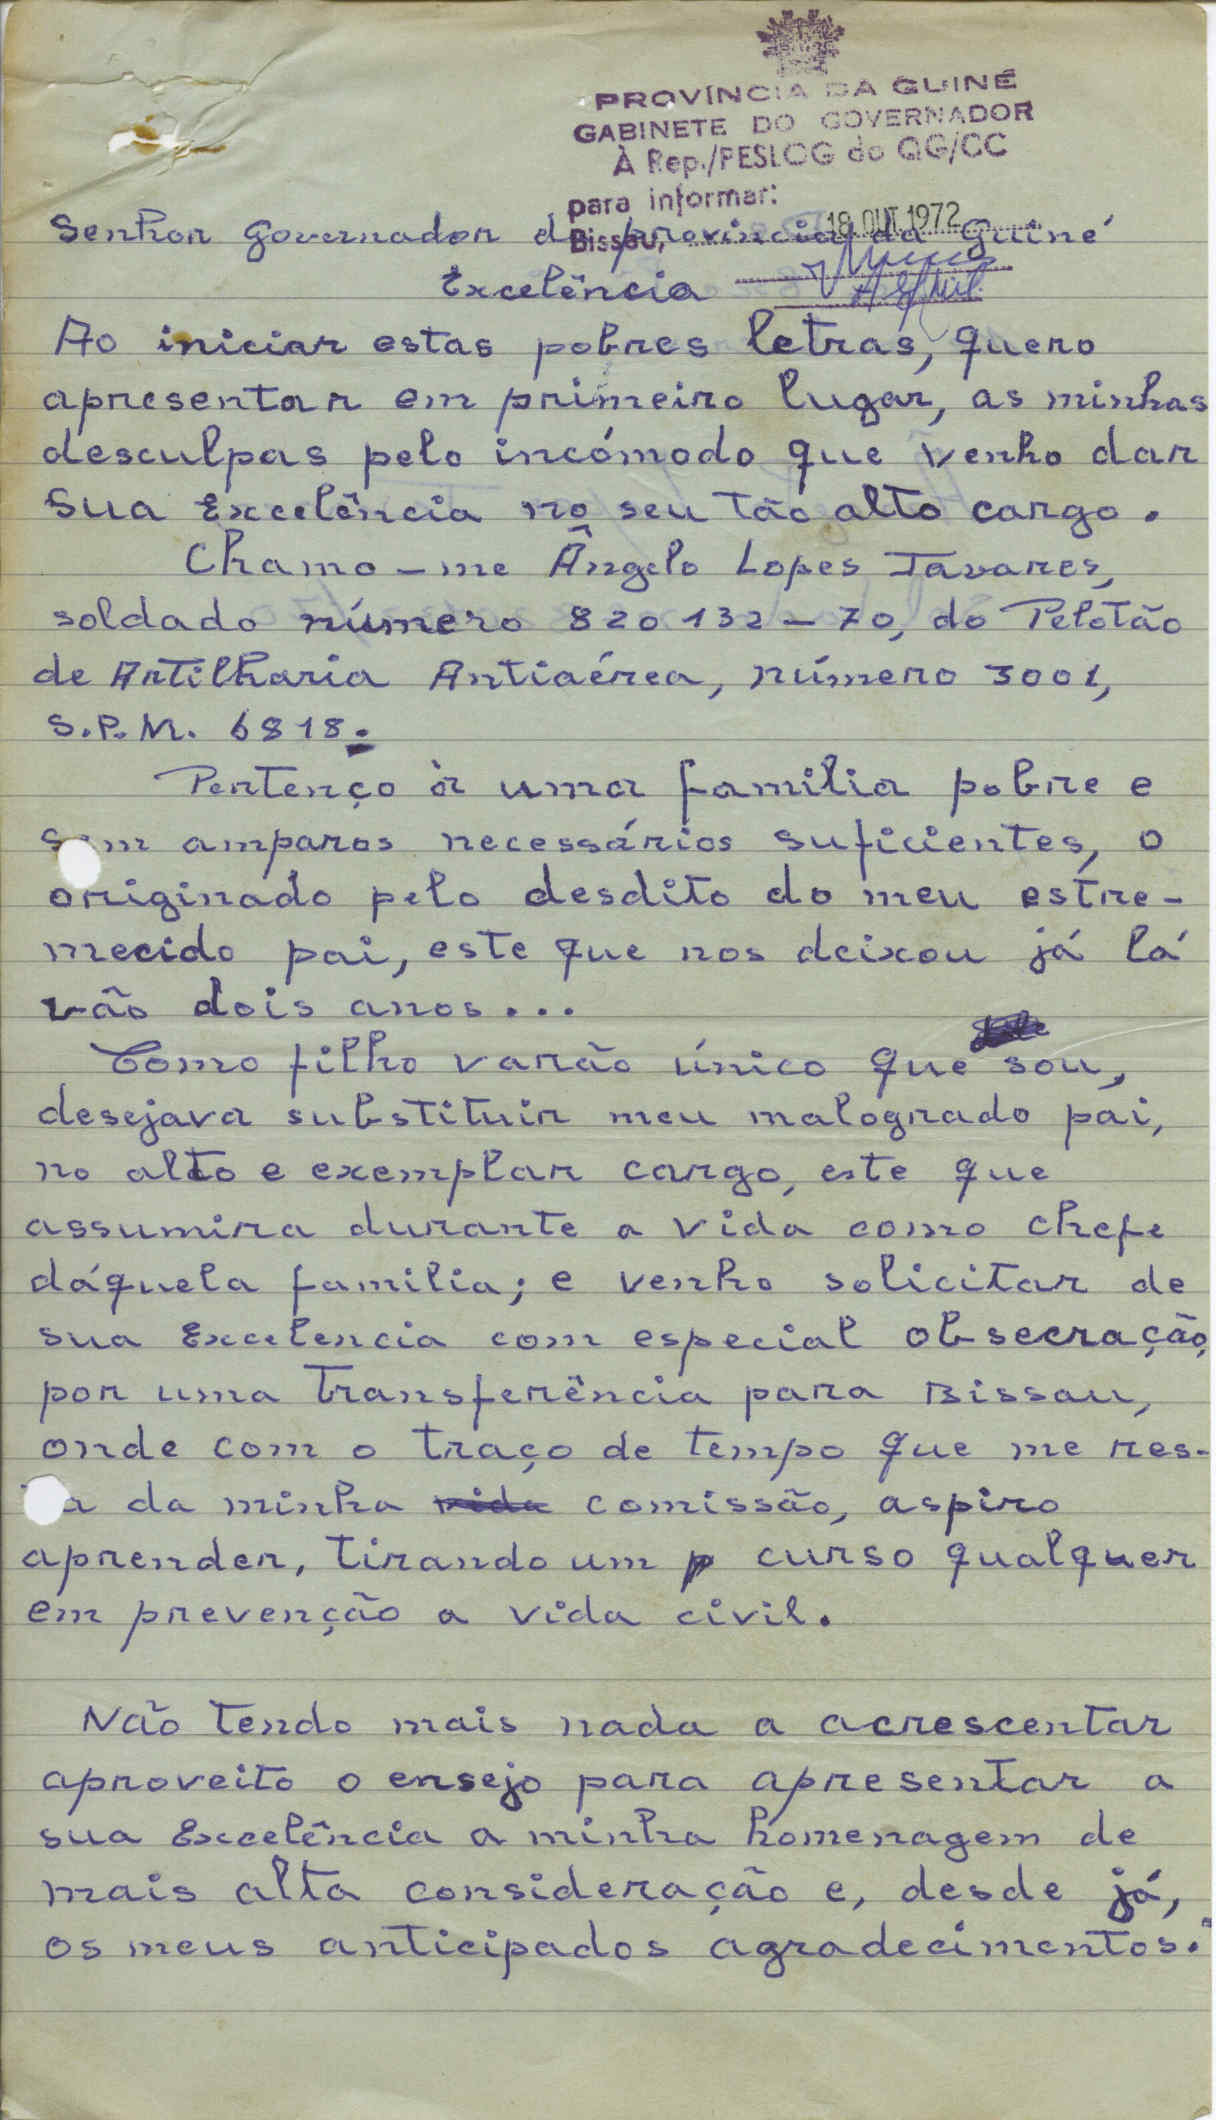 PROVÍNCIA DA GUINÉ
GABINETE DO GOVERNADOR
À Rep./PESLOG do QG/CC
para informar:
Bissau, 18 OUT. 1972
Senhor Governador da província da Guiné
Excelência
Ao iniciar estas pobres letras, quero
apresentar em primeiro lugar, as minhas
desculpas pelo incómodo que venho dar
sua Excelência no seu tão alto cargo.
Chamo-me Ângelo Lopes Tavares,
soldado número 820132-70, do Pelotão
de Artilharia Antiaérea, número 3001,
S.P.M. 6818.
Pertenço à uma familia pobre e
sem amparos necessários suficientes, o
originado pelo desdito do meu estre-
mecido pai, este que nos deixou já lá
vão dois anos...
Como filho varão único que sou,
desejava substituir meu malogrado pai,
no alto e exemplar cargo, este que
assumira durante a vida como chefe
dáquela familia; e venho solicitar de
sua Excelencia com especial obsecração,
por uma transferência para Bissau,
onde com o traço de tempo que me res-
ta da minha vida comissão, aspiro
aprender, tirando um curso qualquer
em prevenção a vida civil.
Não tendo mais nada a acrescentar
aproveito o ensejo para apresentar a
sua Excelência a minha homenagem de
mais alta consideração e, desde já,
os meus anticipados agradecimentos.